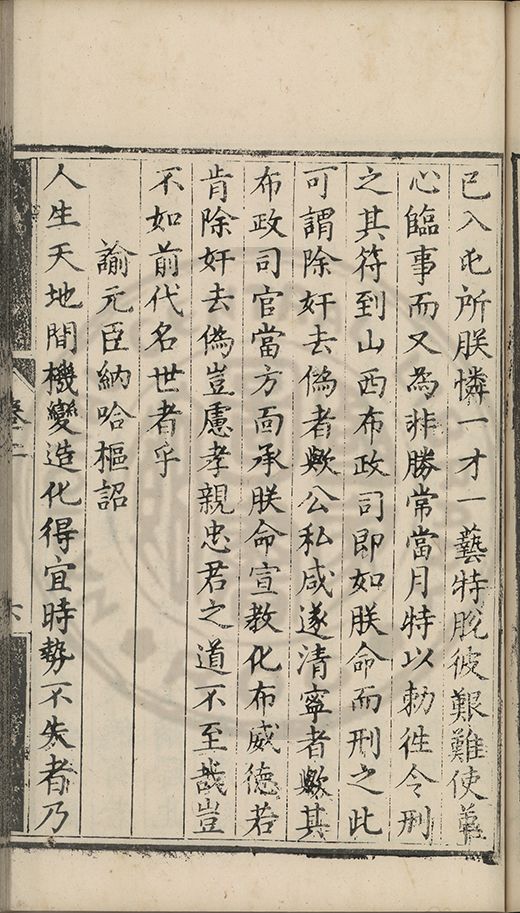 已入屯所朕憐一才一藝特脫彼艱難使革
心臨事而又為非勝常當月特以勑徃令刑
之其符到山西布政司即如朕命而刑之此
可謂除奸去偽者歟公私咸遂清寧者歟其
布政司官當方面承朕命宣教化布威德若
肯除奸去偽豈慮孝親忠君之道不至哉豈
不如前代名世者乎
諭元臣納哈樞詔
人生天地間機變造化得宜時勢不失者乃
卷二
六